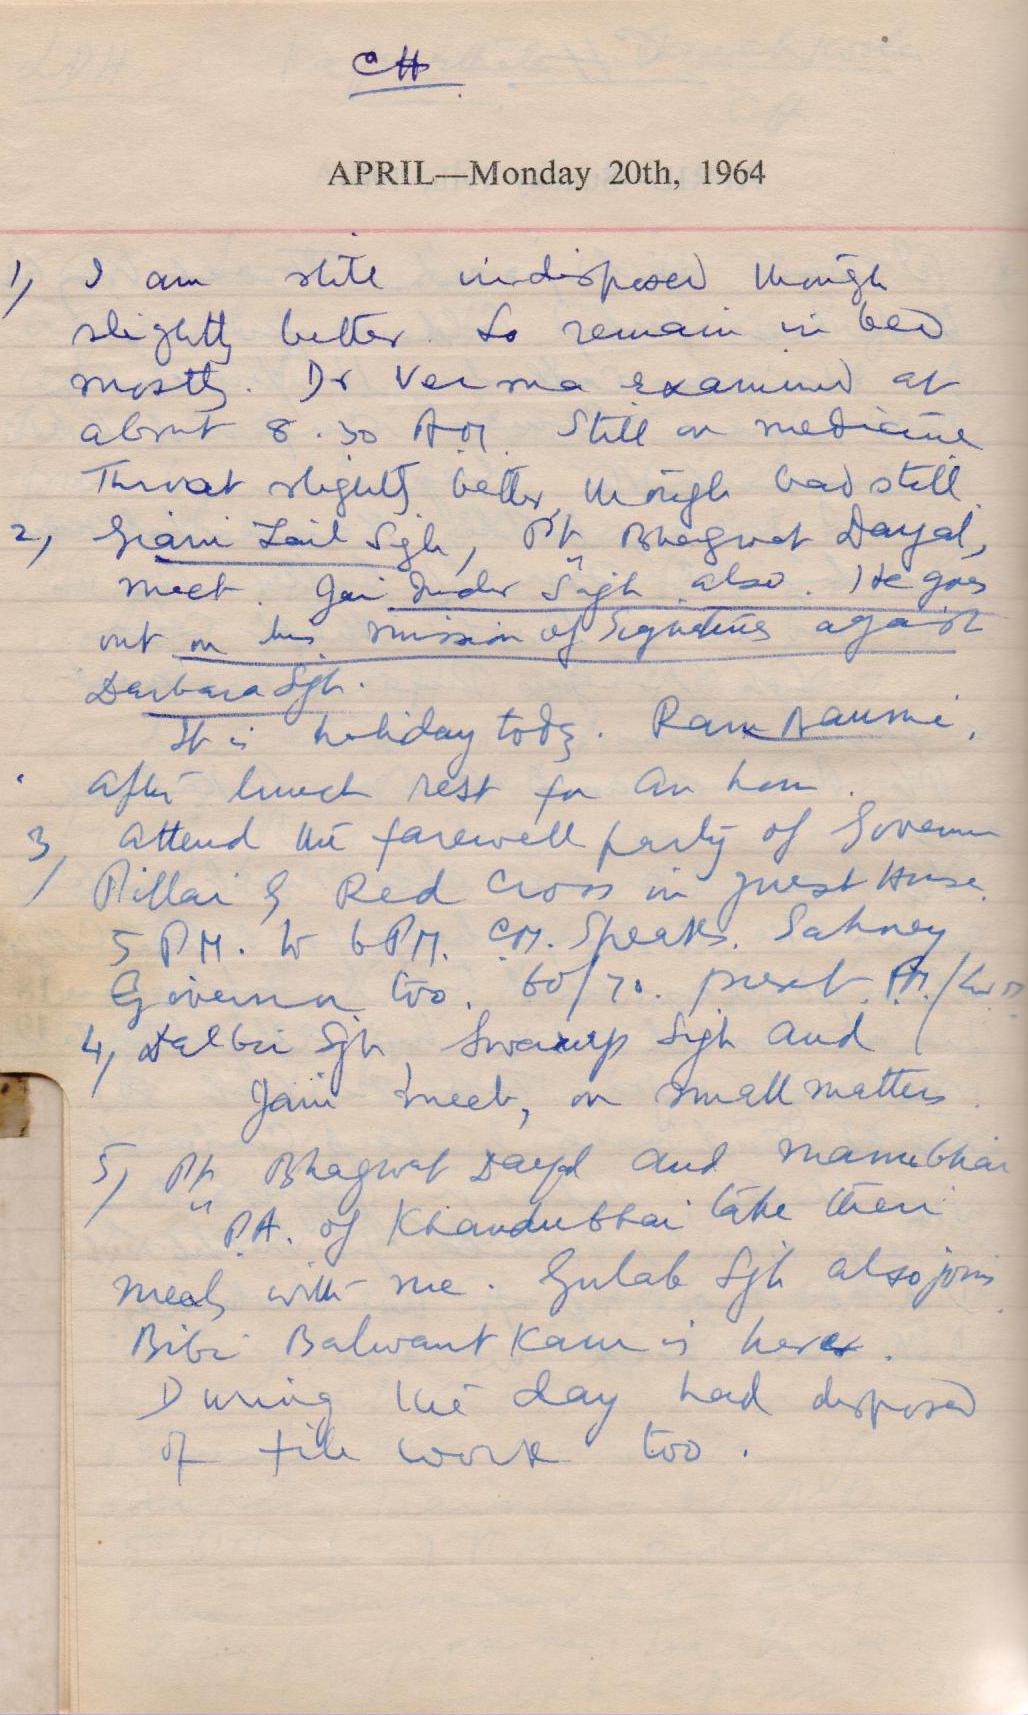 CH
APRIL—Monday 20th, 1964
1) I am still indisposed though
slightly better. So remain in bed
mostly. Dr Verma examined at
about 8.30 AM. Still on medicine
Throat slightly better, though bad still.
2) Giani Zail Sgh, Pt. Bhagwat Dayal,
meet. Jai Inder Singh also. He goes
out on his mission of Signatures against
Darbara Sgh.
It is holiday today. Ram Naumi.
After lunch rest for an hour.
3) Attend the farewell party of Governor
Pillai & Red Cross in guest House.
5 PM. to 6 PM. CM. Speaks. Sahney
Governor too. 60/70. present.
4) Dalbir Sgh, Swarup Sigh and
Jain meet, on small matters.
5) Pt. Bhagwat Dayal and Manubhai
P.A. of Khandubhai take their
meals with me. Gulab Sgh also joins
Bibi Balwant Kaur is here.
During the day had disposed
of file work too.